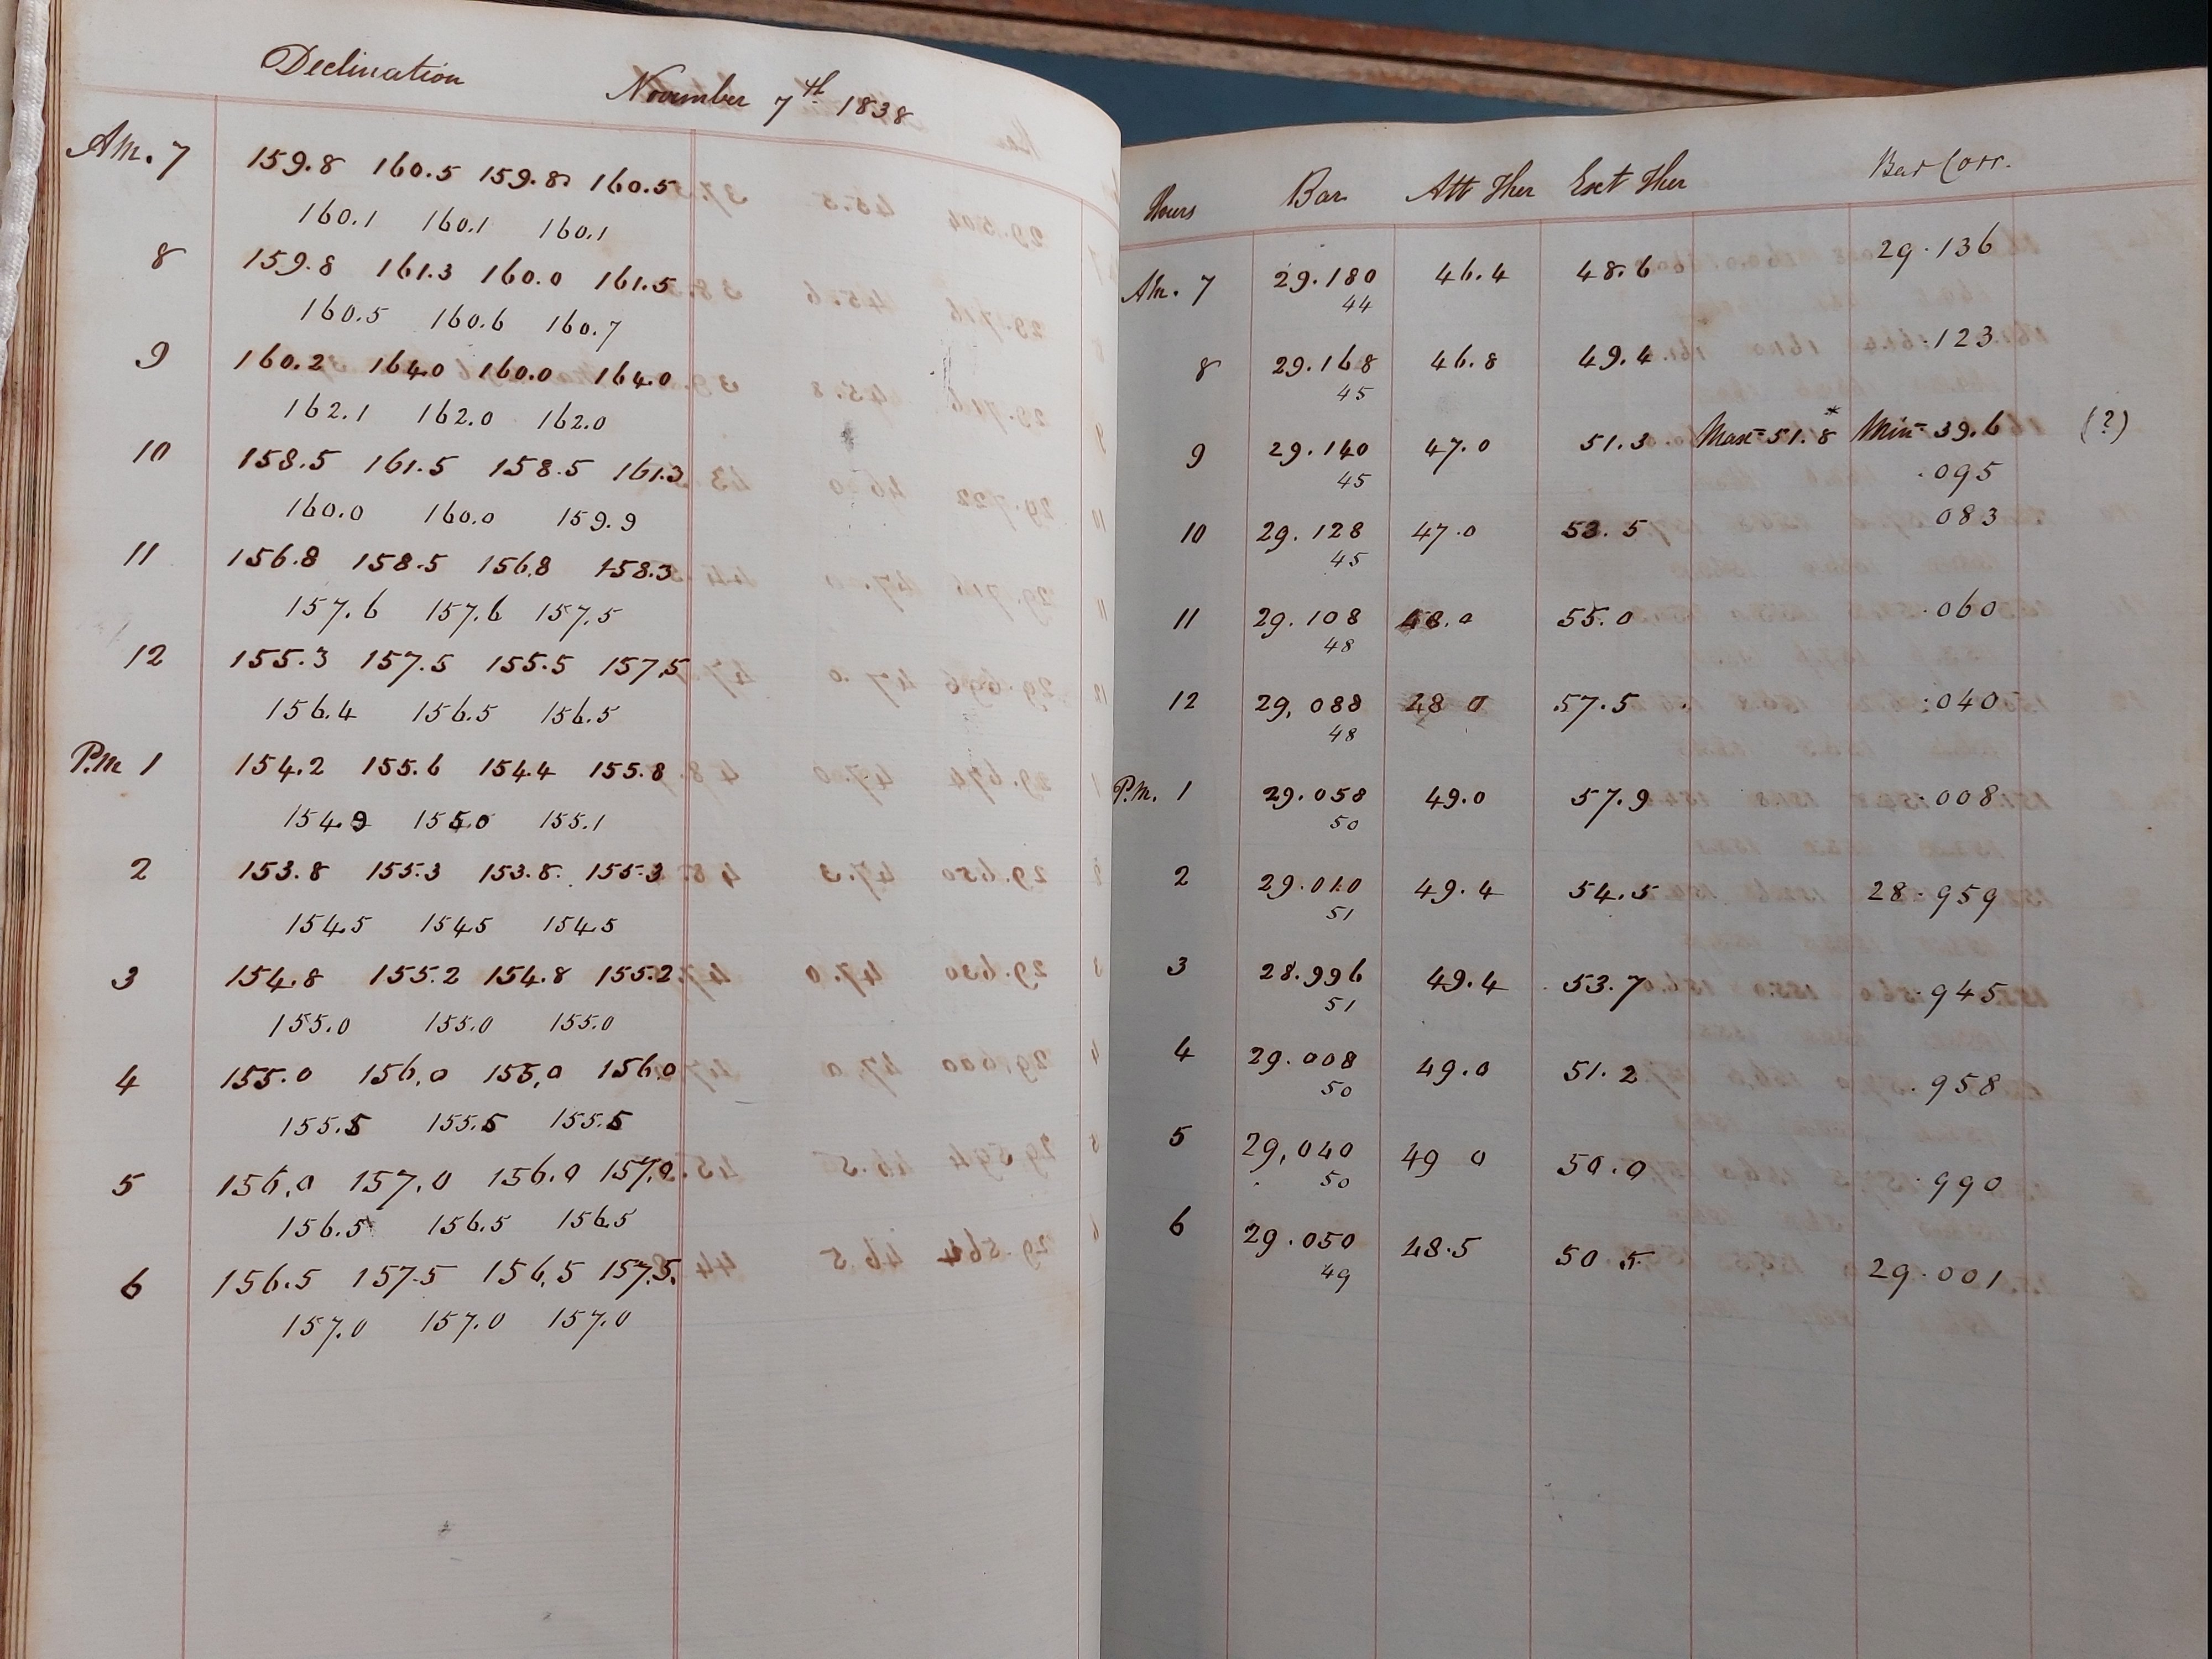 Declination November 7th 1838
Am. 7 159.8 160.5 159.8 160.5
160.1 160.1 160.1
8 159.8 161.3 160.0 161.5
160.5 160.6 160.7
9 160.2 164.0 160.0 164.0
162.1 162.0 162.0
10 158.5 161.5 158.5 161.3
160.0 160.0 159.9
11 156.8 158.5 156.8 158.3
157.6 157.6 157.5
12 155.3 157.5 155.5 157.5
156.4 156.5 156.5
P.m 1 154.2 155.6 154.4 155.8
154.9 155.0 155.1
2 153.8 155.3 153.8 155.3
154.5 154.5 154.5
3 154.8 155.2 154.8 155.2
155.0 155.0 155.0
4 155.0 156,0 155,0 156.0
155.5 155.5 155.5
5 156,0 157,0 156.0 157.0
156.5 156.5 156.5
6 156.5 157.5 156,5 157.5.
157.0 157.0 157.0
Hours Bar Att Ther Ext Ther Bar Corr.
Am. 7 29.180 46.4 48.6 29.136
44
8 29.168 46.8 49.4 .123
45
9 29.140 47.0 51.3 Max= 51.8* Min= 39.6 (?)
45 .095
10 29.128 47.0 53.5 083
45
11 29.108 48.0 55.0 .060
48
12 29,088 48 0 57.5 .040
48
P.m. 1 29.058 49.0 57.9 .008
50
2 29.010 49.4 54.5 28.959
51
3 28.996 49.4 53.7 .945
51
4 29.008 49.0 51.2 .958
50
5 29,040 49 0 50.0 .990
50
6 29.050 48.5 50.5 29.001
49